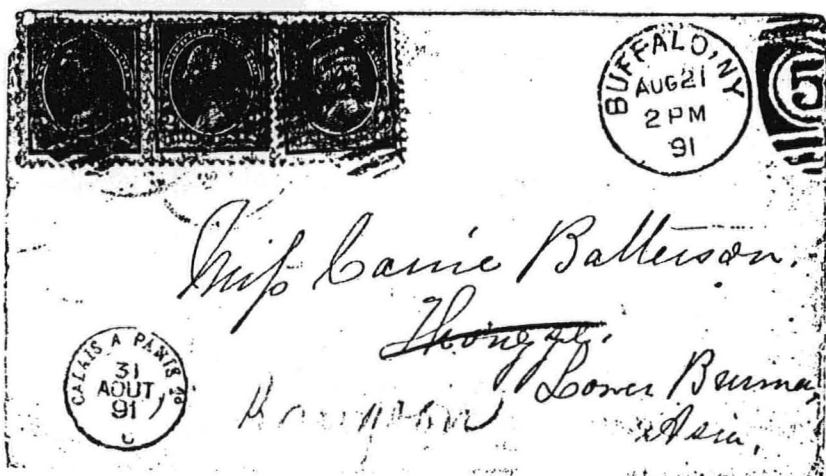 BUFFALO, N.Y.
AUG 21
2 PM
91
5
Miss Carrie Batterson.
Thongze.
Lower Burma,
Asia,
CALAIS A PARIS
31
AOUT
91